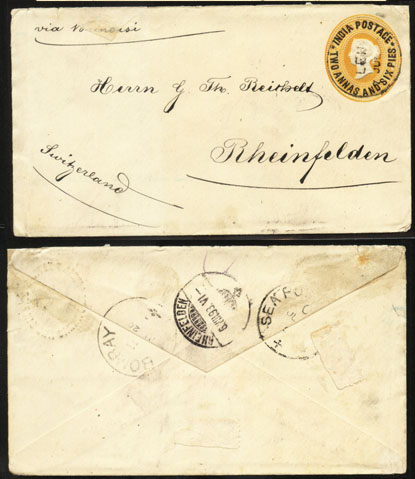 via
INDIA POSTAGE
TWO ANNAS AND SIX PIES
Herrn G. Th. Reichelt
Rheinfelden
Switzerland
BOMBAY
RHEINFELDEN
SEA